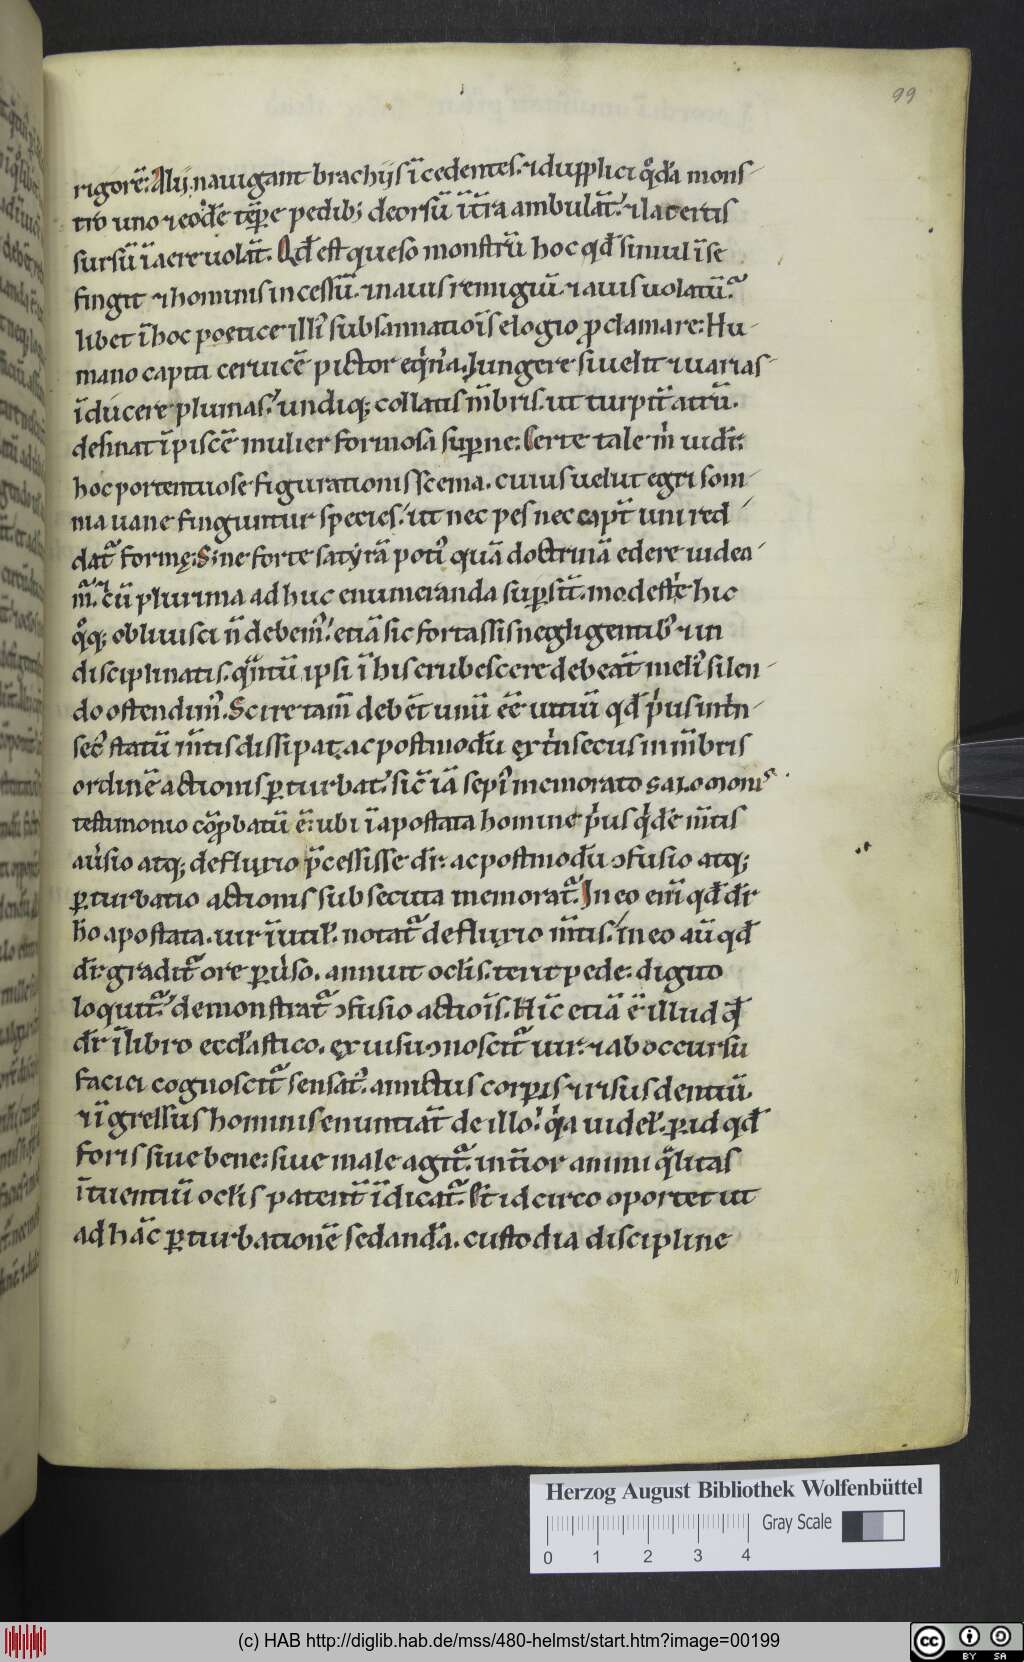 99
rigorē. Alij nauigant brachijs īcedentes. ⁊ dupplici q̊dā mons-
tro uno ⁊ eodē tēp̄e pedib; deorsū īt̄ra ambulāt. ⁊ lacertis
sursū īaere uolāt. Qđ est queso monstrū hoc qđ simul īse
fingit ⁊ hominis incessū. ⁊ nauis remigiū. ⁊ auis uolatū.
libet ī hoc poetice illi᾿ subsannatiōis elogio ꝓclamare: Hu-
mano capiti ceruicē pictor eq̇nā. Jungere si uelit ⁊ uarias-
īducere plumas. undiq; collatis m̄bris. ut turpit̾ atrū.
desinat ī piscē mulier formosa suꝑne. Certe tale ṁ uidr̄
hoc portentuose figurationis scema. cuius uelut egri som-
nia uane finguntur species. ut nec pes nec capt̾ uni red-
dat᷑ formę. Sine forte satyrā poti᾿ quā doctrinā edere uidea-
m̄. cū plurima adhuc enumeranda suꝑsīt. modeste hic
q̊q; obliuisci n̄ debem᾿. etiā sic fortassis negligentib᾿ ⁊ in
disciplinatis. q̄ntū ipsi ī his erubescere debeāt meli᾿ silen-
do ostendim᾿. Scire tam̄ debēt unū ēē uitiū qđ ṗus int̾n-
sec᾿ statū m̄tis dissipat. ac postmodū ęxt̾nsecus in m̄bris
ordinē actionis ꝑturbat. sic̄ iā sepi᾿ memorato salomonis
testimonio cōꝓbatū ē. ubi ī apostata homine ṗus q̇dē m̄tis
au̇sio atq; defluxio p̄cessisse dr̄. ac postmodū ↄfusio atq;
ꝑturbatio actionis subsecuta memorat᷑. In eo eni̅ qđ dr̄
hō apostata. uir īutił. notat᷑ defluxio m̄tis. in eo aū qđ
dr̄. gradit᷑ ore ꝑu̇so. annuit ocłis. terit pede. digito
loquit᷑. demonstrat᷑ ↄfusio actiōis. Hīc etiā ē illud qđ
dr̄ ī libro eccłastico. ęx uisu ↄnoscit᷑ uir. ⁊ ab occursu
faciei cognoscit᷑ sensat᾿. amictus corꝑis ⁊ risus dentiū.
⁊ īgressus hominis enuntiāt de illo. q̇a uideł. ꝑ id qđ
foris siue bene. siue male agit᷑. int̄ior animi q̄litas
ītuentiū ocłis patent̄ īdicat᷑. Et idcirco oportet ut
ad hāc ꝑturbationē sedandā. custodia discipline
Herzog August Bibliothek Wolfenbüttel
Gray Scale
0 1 2 3 4
(c) HAB http://diglib.hab.de/mss/480-helmst/start.htm?image=00199
cc BY SA